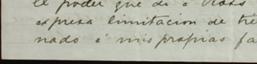 el poder que di á
expresa limitacion de tre
nado é mis propias fa